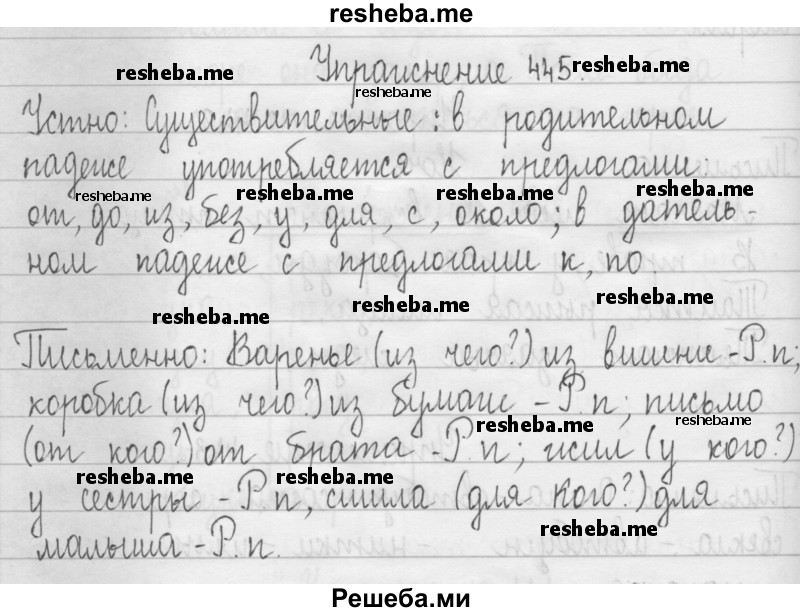 resheba.me
Упражнение 445.
resheba.me
resheba.me
Устно: Существительные: в родительном
падеже употребляется с предлогами:
resheba.me resheba.me resheba.me resheba.me
от, до, из, без, у, для, с, около; в датель-
ном падеже с предлогами к, по
resheba.me
resheba.me
resheba.me
Письменно: Варенье (из чего?) из вишни - Р.п;
коробка (из чего?) из бумаги - Р.п; письмо
resheba.me resheba.me
(от кого?) от брата - Р.п; жил (у кого?)
resheba.me resheba.me
у сестры - Р.п, сшила (для кого?) для
resheba.me
малыша - Р.п.
Решеба.ми